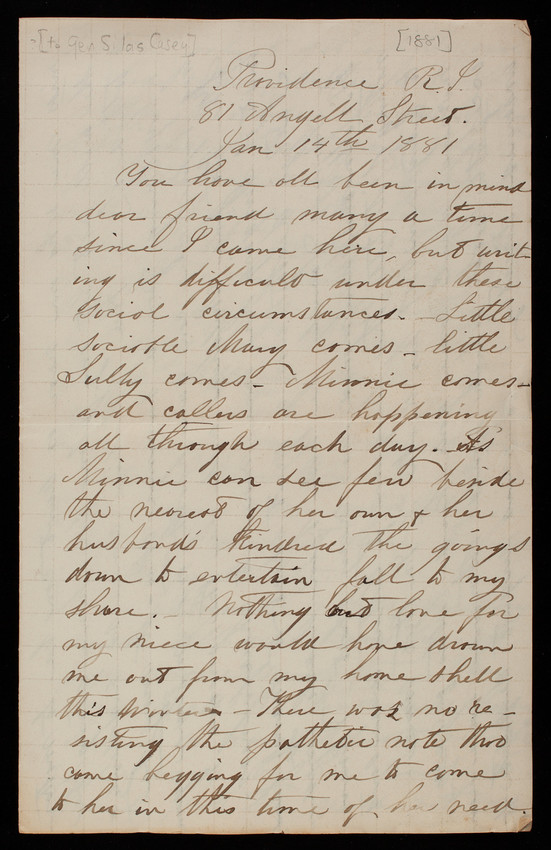 ?[to Gen Silas Casey] [1881]
Providence R.I.
81 Angell Street.
Jan 14th 1881
You have all been in mind
dear friend many a time
since I came here, but writ-
ing is difficult under these
social circumstances. - Little
sociable Mary comes - little
Sully comes - Minnie comes -
and callers are happening
all through each day. - As
Minnie can see few beside
the nearest of her own & her
husband's kindred the goings
down to entertain fall to my
share. - Nothing but love for
my niece would have drawn
me out from my home shell
this Winter - There was no re-
sisting the pathetic note that
came begging for me to come
to her in this time of her need.